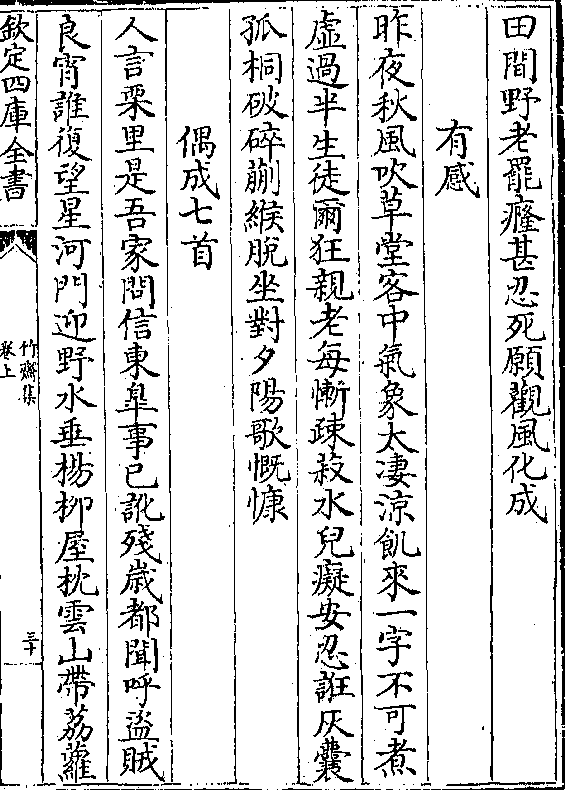 田間野老罷癃甚忍死願觀風化成
有感
昨夜秋風吹草堂客中氣象太凄涼飢來一字不可煮
虛過半生徒爾狂親老每慚疎菽水兒癡安忍誑灰囊
孤桐破碎蒯緱脫坐對夕陽歌慨慷
偶成七首
人言栗里是吾家問信東臯事已訛殘歳都聞呼盜賊
良宵誰復望星河門迎野水垂楊柳屋枕雲山帶荔蘿
欽定四庫全書
竹齋集
卷上
三十